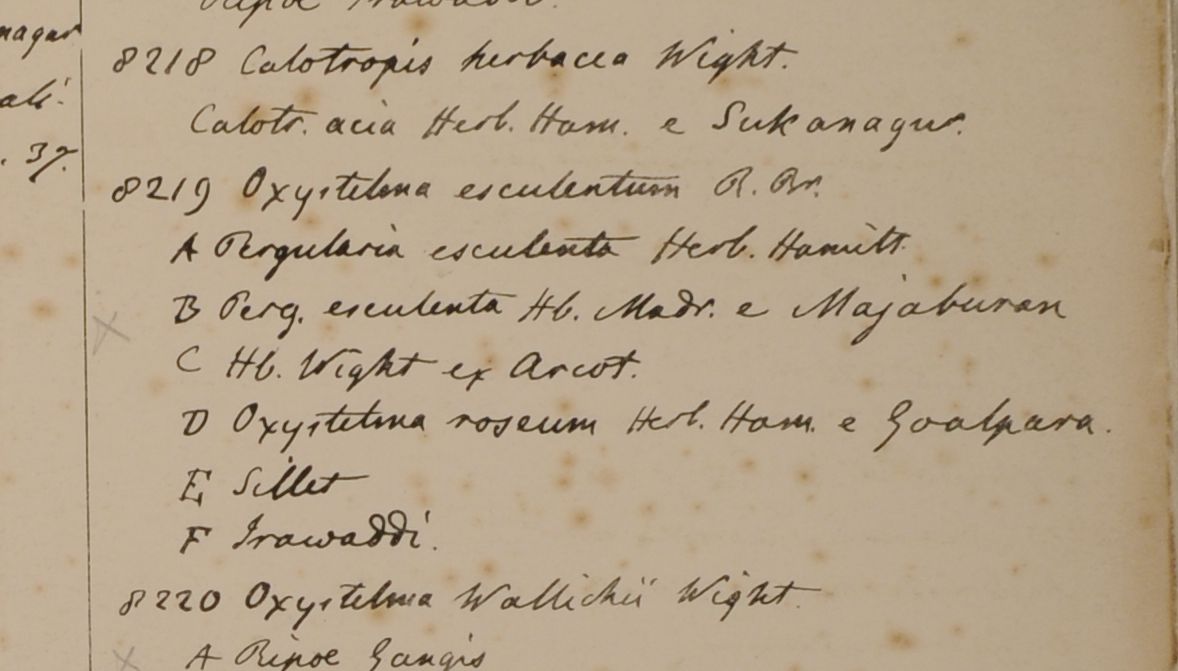 nagur
ali.
. 37.
Ripae Irawaddi.
8218 Calotropis herbacea Wight.
Calotr. acia Herb. Ham. e Sukanagur.
8219 Oxystelma esculentum R. Br.
A Pergularia esculenta Herb. Hamilt.
B Perg. esculenta Hb. Madr. e Majaburan
C Hb. Wight ex Arcot.
D Oxystelma roseum Herb. Ham. e Goalpara.
E Sillet
F Irawaddi.
8220 Oxystelma Wallichii Wight.
A Ripae Gangis